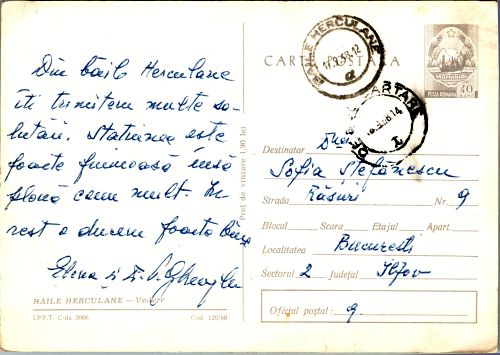 Din băile Herculane
îți trimitem multe sa-
lutări. Stațiunea este
foarte frumoasă însă
plouă cam mult. În
rest o ducem foarte bine
Elena și
BĂILE HERCULANE — Vedere
I.P.F.T. C-da 3066
Cod. 120/68
Preț de vînzare 1,90 lei
CARTE POSTALA
BĂILE HERCULANE
POSTA ROMANA
40
CARTARE
Destinatar
Sofia Ștefănescu
Strada Răsuri Nr. 9
Blocul Scara Etajul Apart.
Localitatea București
Sectorul 2 Județul Ilfov
Oficiul poștal: 9.